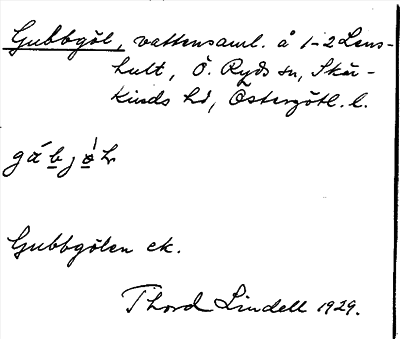 Gubbgöl, vattensaml. å 1-2 Lens-
hult, Ö. Ryds sn, Skär-
kinds hd, Östergötl. l.
Gubbgölen ek.
Thord Lindell 1929.